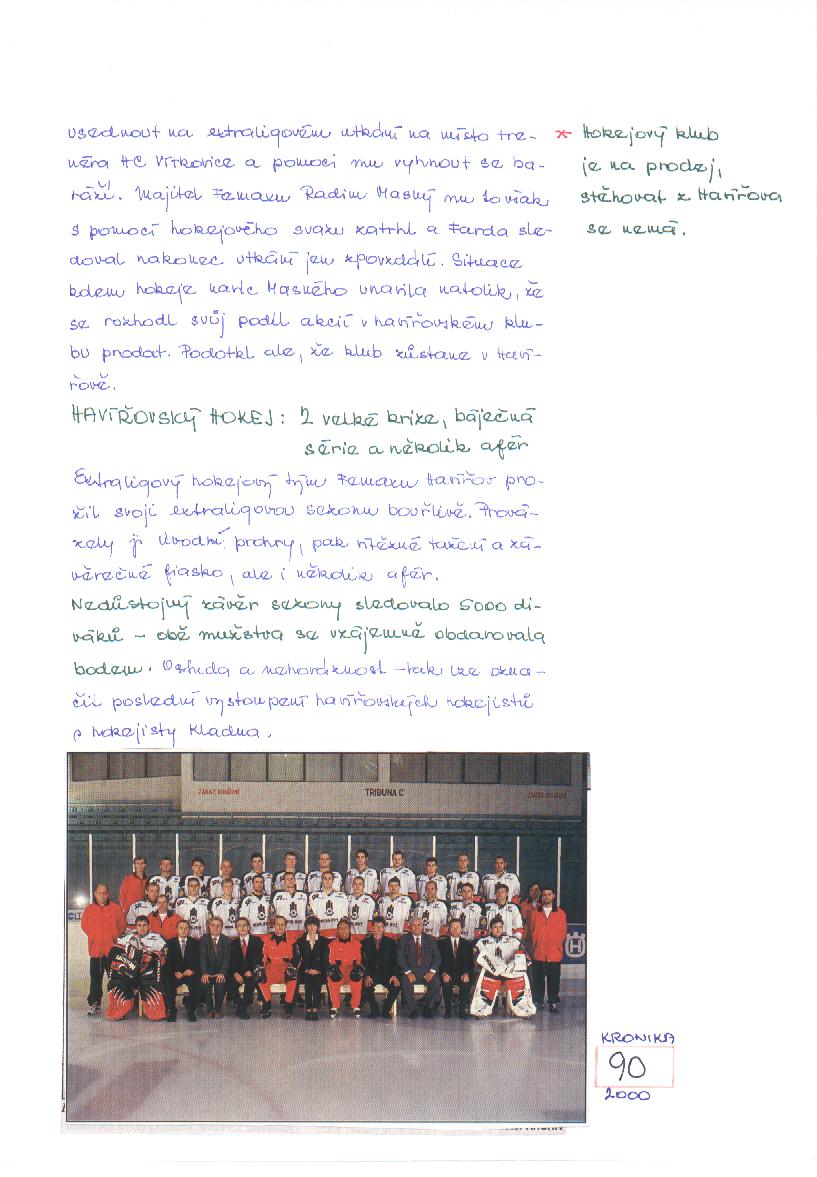 usednout na extraligovém utkání na místo tre-
néra HC Vítkovice a pomoci mu vyhnout se ba-
ráži. Majitel Femaxu Radim Masný mu to však
s pomocí hokejového svazu zatrhl a Farda sle-
doval nakonec utkání jen zpovzdálí. Situace
kdem hokeje navíc Masného unavila natolik, že
se rozhodl svůj podíl akcií v havířovském klu-
bu prodat. Podotkl ale, že klub zůstane v Haví-
řově.
* Hokejový klub
je na prodej,
stěhovat z Havířova
se nemá.
HAVÍŘOVSKÝ HOKEJ: 2 velké krize, báječná
série a několik afér
Extraligový hokejový tým Femaxu Havířov pro-
žil svoji extraligovou sezonu bouřlivě. Prová-
zely ji úvodní prohry, pak vítězné tažení a zá-
věrečné fiasko, ale i několik afér.
Nedůstojný závěr sezony sledovalo 5000 di-
váků - obě mužstva se vzájemně obdarovala
bodem. Ostuda a nehoráznost - tak lze ozna-
čit poslední vystoupení havířovských hokejistů
s hokejisty Kladna.
ZÁKAZ KOUŘENÍ
TRIBUNA C
ZÁKAZ KOUŘENÍ
KRONIKA
90
2000